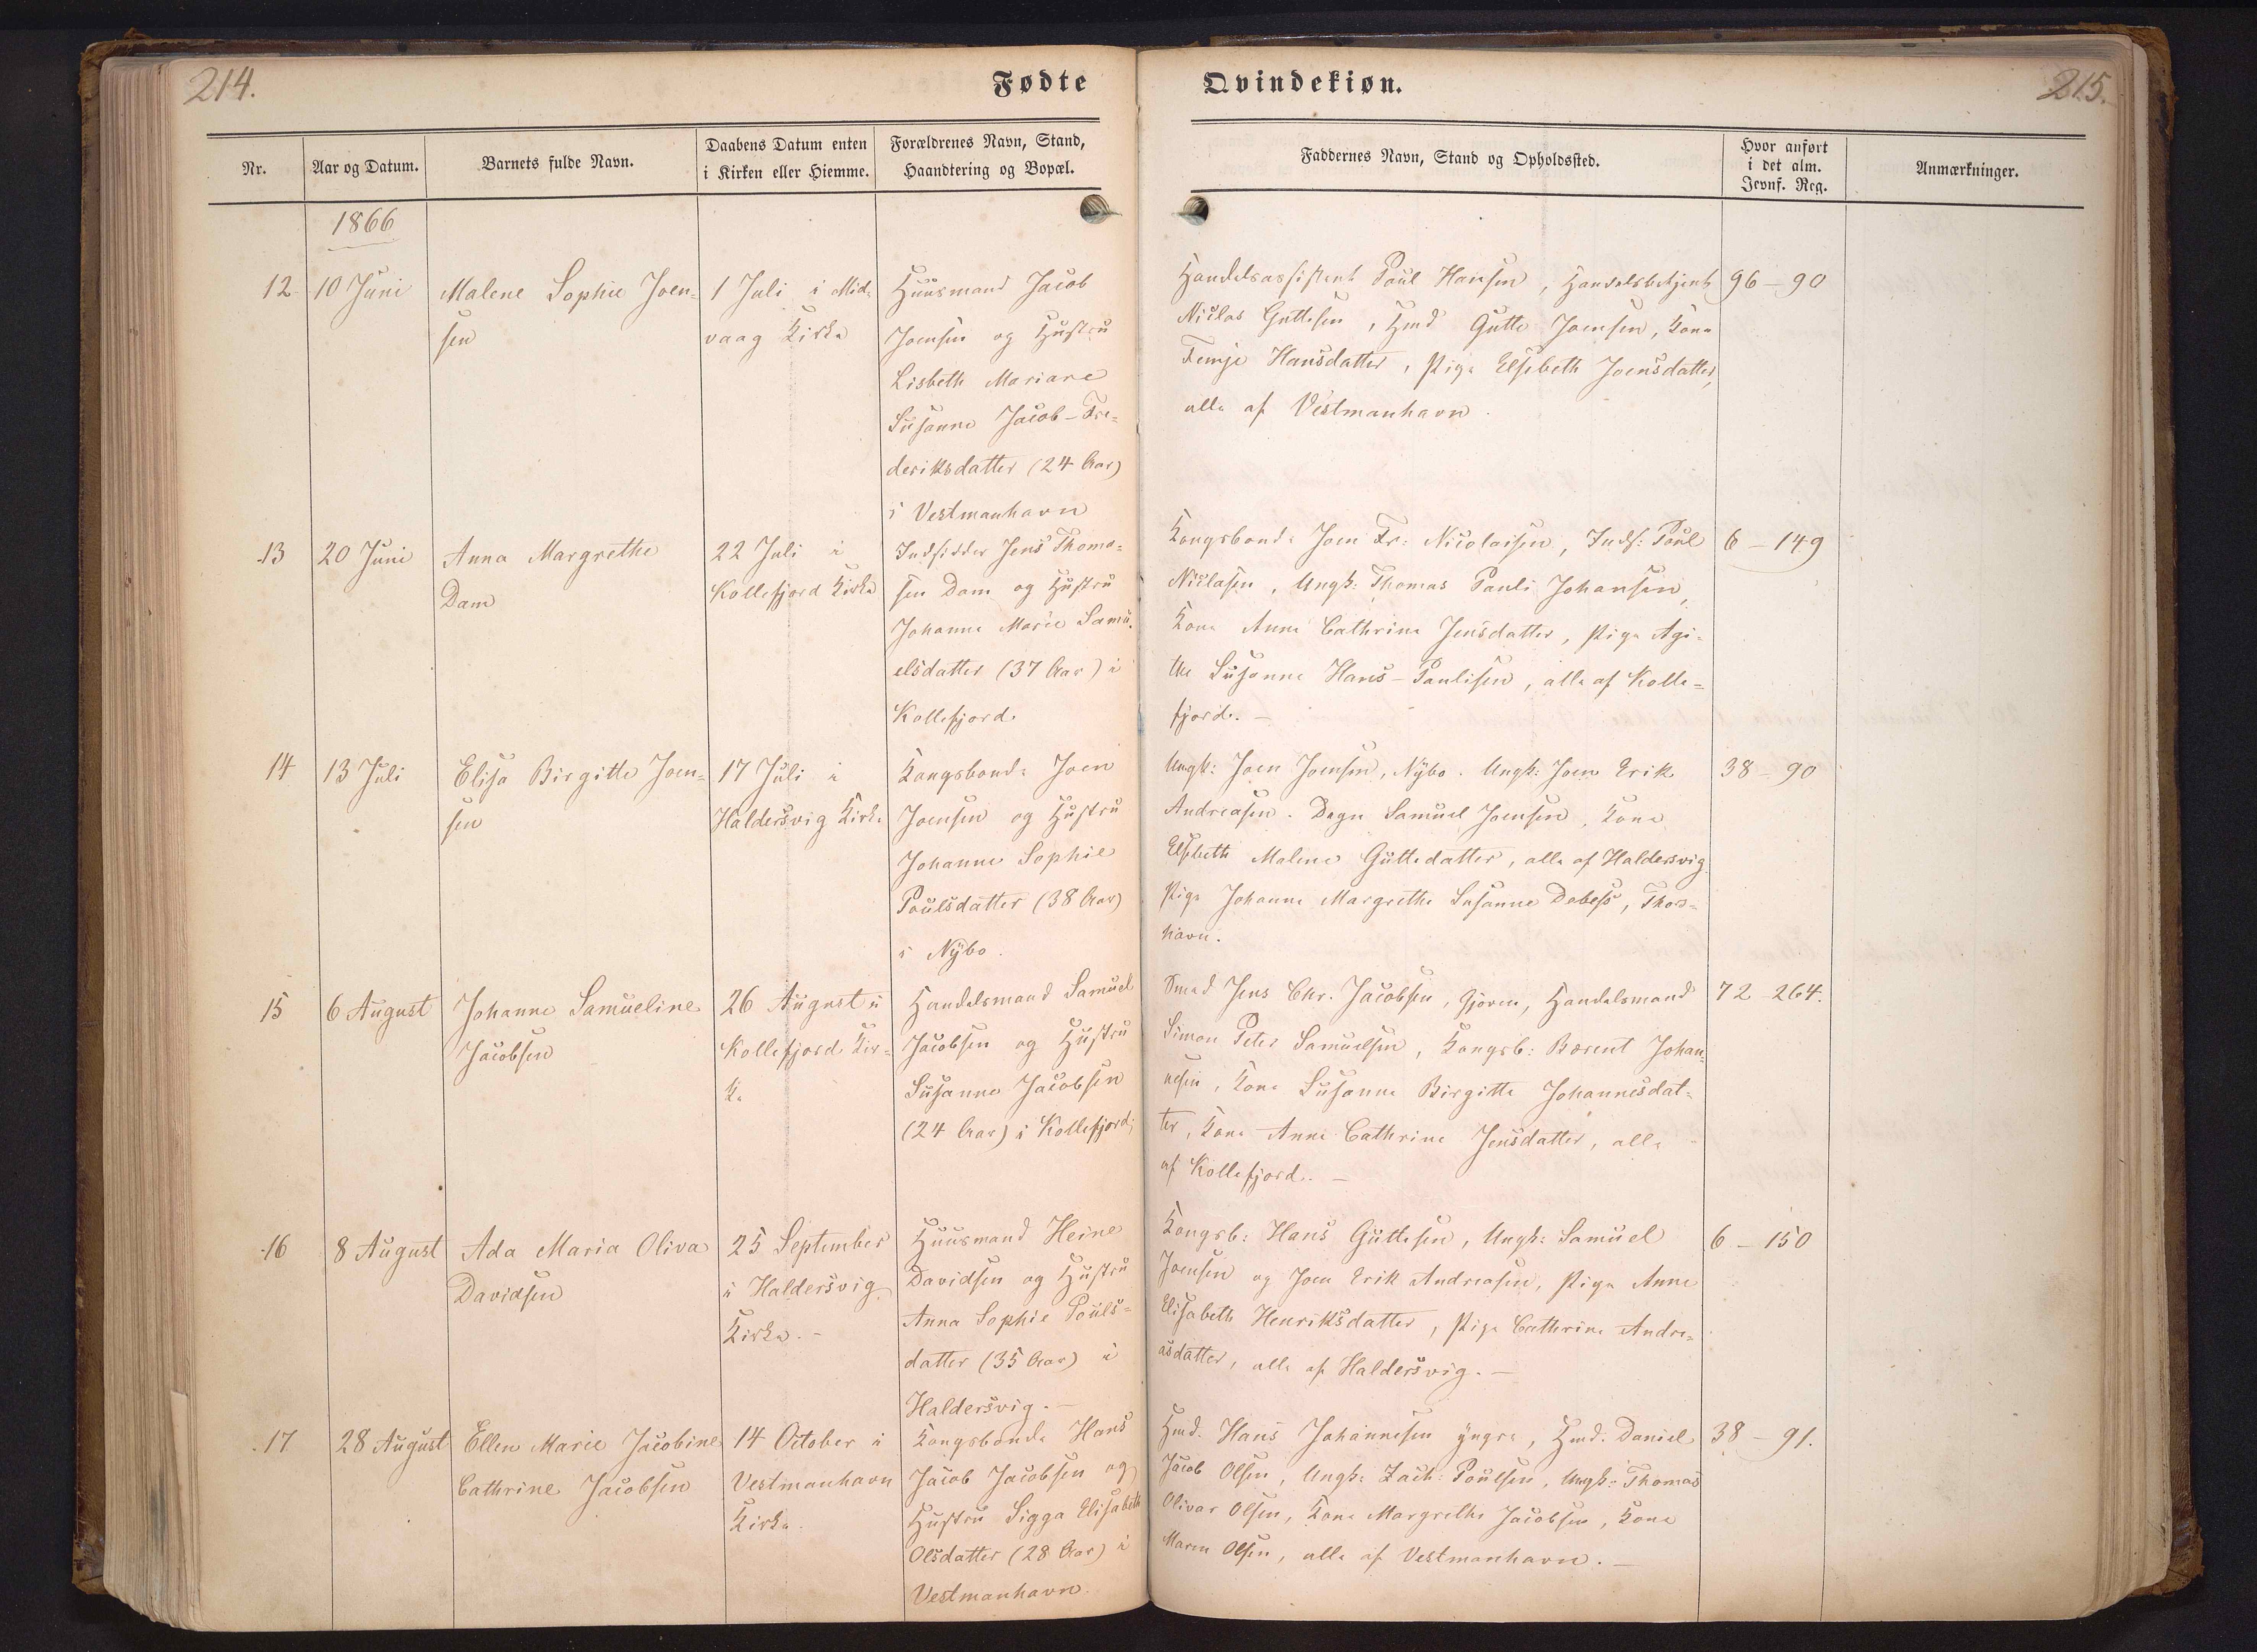 214.
Fødte
Qvindekiøn.
215.
Nr.
Aar og Datum.
Barnets fulde Navn.
Daabens Datum enten
i Kirken eller Hiemme.
Forældrenes Navn, Stand,
Haandtering og Bopæl.
Faddernes Navn, Stand og Opholdssted.
Hvor anført
i det alm.
Jevnf. Reg.
Anmærkninger.
1866
12
10 Juni
Malene Sophie Joen-
sen
1 Juli i Mid-
vaag Kirke
Huusmand Jacob
Joensen og Hustru
Lisbeth Mariane
Susanne Jacob-Fre-
deriksdatter (24 Aar)
i Vestmanhavn
Handelsassistent Poul Hansen, Handelsbetjent
Niclas Guttesen, Hmd Gutte Joensen, Kone
Hansdatter, Pige Elsebeth Joensdatter,
alle af Vestmanhavn.
96 - 90
13
20 Juni
Anna Margrethe
Dam
22 Juli i
Kollefjord Kirke
Indsidder Jens Thoma-
sen Dam og Hustru
Johanne Marie Samu-
elsdatter (37 Aar) i
Kollefjord.
Kongsbonde Joen Fr: Nicolaisen, Inds: Poul
Niclasen, Ungk: Thomas Pauli Johansen,
Kone Anne Cathrine Jensdatter, Pige Agi-
the Susanne Hans-Paulisen, alle af Kolle-
fjord. -
6 - 149
14
13 Juli
Elisa Birgitte Joen-
sen
17 Juli i
Haldersvig Kirke
Kongsbonde Joen
Joensen og Hustru
Johanne Sophie
Poulsdatter (38 Aar)
i Nybo.
Ungk: Joen Joensen, Nybo. Ungk: Joen Erik
Andreasen. Degn Samuel Joensen, Kone
Elsbeth Malene Guttedatter, alle af Haldersvig.
Pige Johanne Margrethe Susanne Debess, Thors-
havn.
38 - 90
15
6 August
Johanne Samueline
Jacobsen
26 August i
Kollefjord Kir-
ke
Handelsmand Samuel
Jacobsen og Hustru
Susanne Jacobsen
(24 Aar) i Kollefjord;
Smed Jens Chr. Jacobsen, Gjoven, Handelsmand
Simon Peter Samuelsen, Kongsb: Barent Johan-
nesen, Kone Susanne Birgitte Johannesdat-
ter, Kone Anne Cathrine Jensdatter, alle
af Kollefjord. -
72 264.
16
8 August
Ada Maria Oliva
Davidsen
25 September
i Haldersvig
Kirke. -
Huusmand Heine
Davidsen og Hustru
Anna Sophie Pouls-
datter (35 Aar) i
Haldersvig. -
Kongsb: Hans Guttesen, Ungk: Samuel
Joensen og Joen Erik Andreasen, Pige Anne
Elisabeth Henriksdatter, Pige Cathrine Andre-
asdatter, alle af Haldersvig. -
6 - 150
17
28 August
Ellen Marie Jacobine
Cathrine Jacobsen
14 October i
Vestmanhavn
Kirke.
Kongsbonde Hans
Jacob Jacobsen og
Hustru Sigga Elisabeth
Olsdatter (28 Aar) i
Vestmanhavn.
Hmd. Hans Johannesen yngre, Hmd. Daniel
Jacob Olsen, Ungk: Zach: Poulsen, Ungk: Thomas
Olivar Olsen, Kone Margrethe Jacobsen, Kone
Maren Olsen, alle af Vestmanhavn. -
38 - 91.